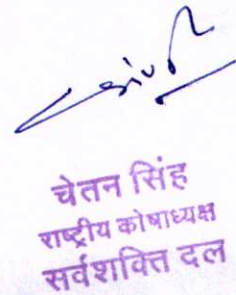 चेतन सिंह
राष्ट्रीय कोषाध्यक्ष
सर्वशक्ति दल